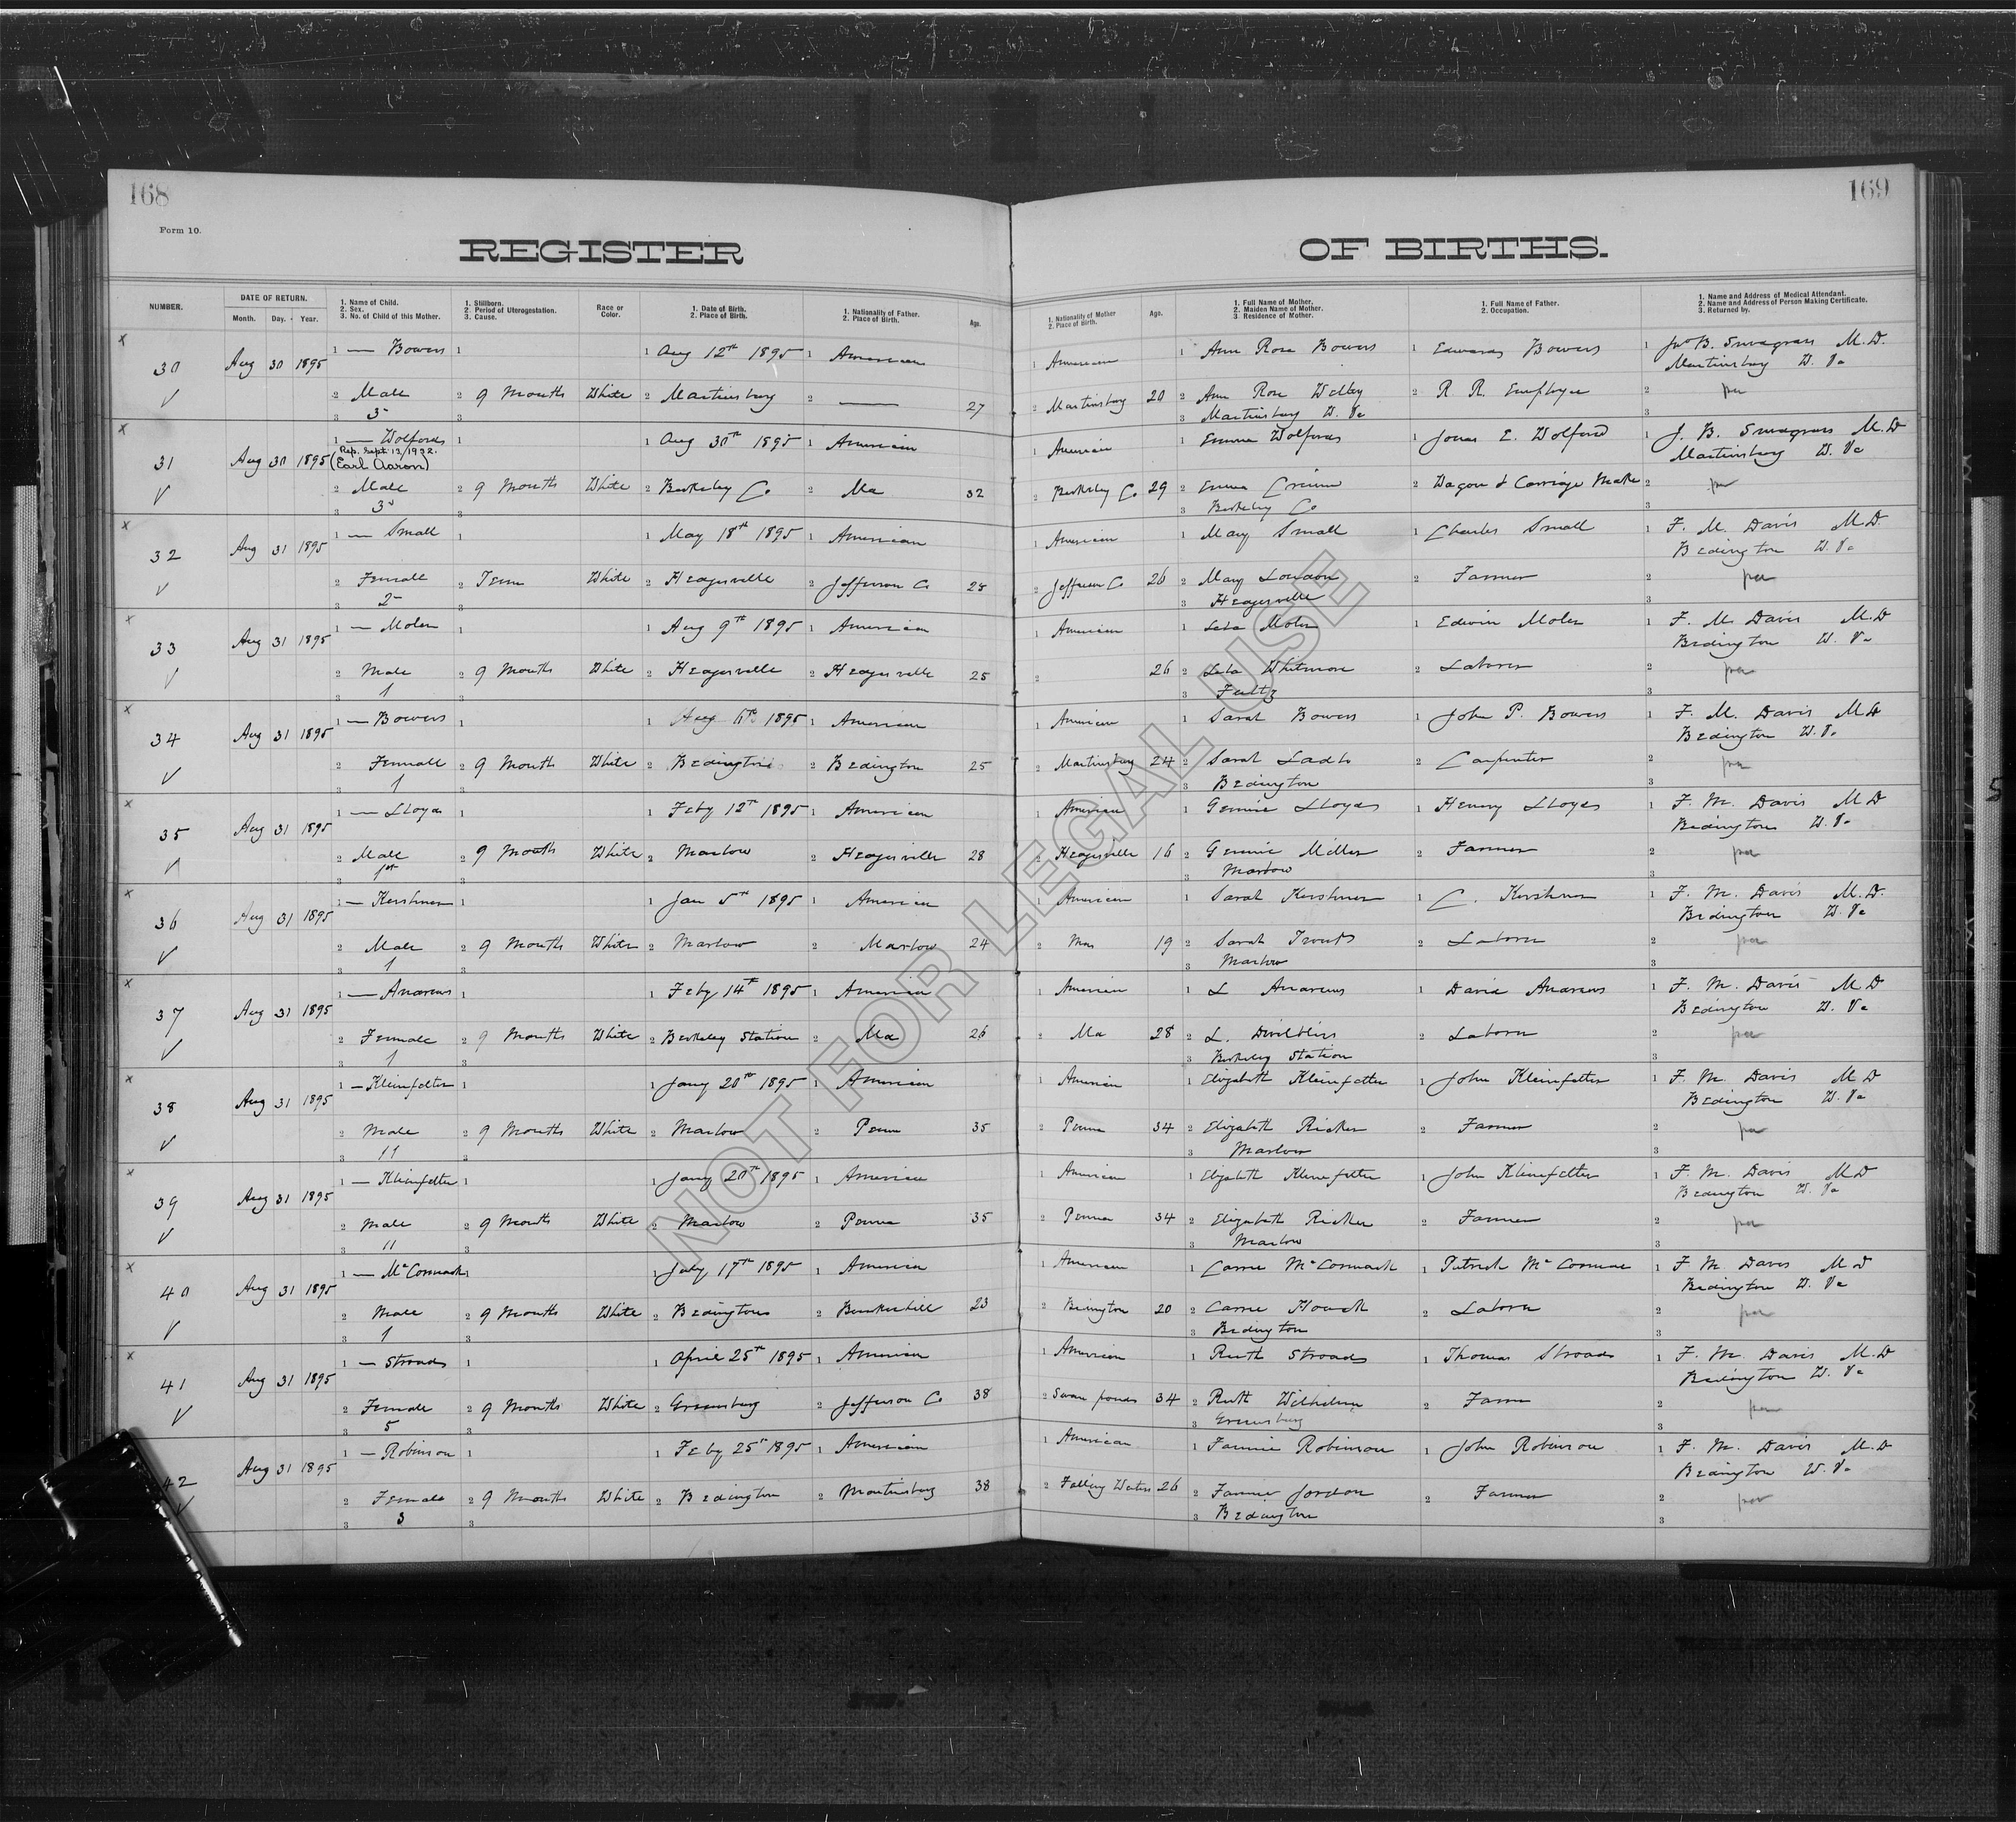 168
169
Form 10.
REGISTER OF BIRTHS.
NUMBER.
DATE OF RETURN.
Month. Day. Year.
1. Name of Child.
2. Sex.
3. No. of Child of this Mother.
1. Stillborn.
2. Period of Uterogestation.
3. Cause.
Race or Color.
1. Date of Birth.
2. Place of Birth.
1. Nationality of Father.
2. Place of Birth.
Age.
1. Nationality of Mother
2. Place of Birth.
Age.
1. Full Name of Mother.
2. Maiden Name of Mother.
3. Residence of Mother.
1. Full Name of Father.
2. Occupation.
1. Name and Address of Medical Attendant.
2. Name and Address of Person Making Certificate.
3. Returned by.
x 1 — Bowers 1 1 Aug 12th 1895 1 American 1 American 1 Ann Rose Bowers 1 Edwards Bowers 1 M.D.
30 Aug 30 1895 Martinsburg W. Va
2 Male 2 9 Months White 2 Martinsburg 2 — 27 2 Martinsburg 20 2 Ann Rose 2 R. R. Employee 2
3 5 3 3 Martinsburg W. Va 3
x 1 — Wolford 1 1 Aug 30th 1895 1 American 1 American 1 Emma Wolford 1 Jonas E. Wolford 1 J. B. M.D
Rep. Sept. 12/1932.
31 Aug 30 1895 (Earl Aaron) Martinsburg W. Va
2 Male 2 9 Months White 2 Berkeley Co 2 Ma 32 2 Berkeley Co 29 2 Emma 2 Wagon & Carriage Make 2
3 3 3 3 Berkeley Co 3
x 1 — Small 1 1 May 18th 1895 1 American 1 American 1 Mary Small 1 Charles Small 1 F. M. Davis M.D.
32 Aug 31 1895 Bedington W. Va
2 Female 2 Term White 2 2 Jefferson Co 28 2 Jefferson Co 26 2 Mary 2 Farmer 2
3 2 3 3 3
x 1 — Moler 1 1 Aug 9th 1895 1 American 1 American 1 Moler 1 Edwin Moler 1 F. M. Davis M.D
33 Aug 31 1895 Bedington W. Va
2 Male 2 9 Months White 2 2 25 2 26 2 Whitmore 2 Laborer 2
3 1 3 3 3
x 1 — Bowers 1 1 Aug 1895 1 American 1 American 1 Sarah Bowers 1 John P. Bowers 1 F. M. Davis M.D
34 Aug 31 1895 Bedington W. Va
2 Female 2 9 Month White 2 Bedington 2 Bedington 25 2 Martinsburg 24 2 Sarah 2 Carpenter 2
3 1 3 3 Bedington 3
x 1 — Lloyd 1 1 Feby 12th 1895 1 American 1 American 1 Lloyd 1 Henry Lloyd 1 F. M. Davis M.D
35 Aug 31 1895 Bedington W. Va
2 Male 2 9 Month White 2 Marlow 2 28 2 16 2 Miller 2 Farmer 2
3 1st 3 3 Marlow 3
x 1 — Kershner 1 1 Jan 5th 1895 1 American 1 American 1 Sarah Kershner 1 C. Kershner 1 F. M. Davis M.D.
36 Aug 31 1895 Bedington W. Va
2 Male 2 9 Months White 2 Marlow 2 Marlow 24 2 19 2 Sarah 2 Laborer 2
3 1 3 3 Marlow 3
x 1 — Andrews 1 1 Feby 14th 1895 1 American 1 American 1 L Andrews 1 David Andrews 1 F. M. Davis M.D
37 Aug 31 1895 Bedington W. Va
2 Female 2 9 Months White 2 Berkeley Station 2 Ma 26 2 Ma 28 2 L. 2 Laborer 2
3 1 3 3 Berkeley Station 3
x 1 — Kleinfelter 1 1 Jany 20th 1895 1 American 1 American 1 Elizabeth Kleinfelter 1 John Kleinfelter 1 F. M. Davis M.D
38 Aug 31 1895 Bedington W. Va
2 Male 2 9 Months White 2 Marlow 2 Penna 35 2 Penna 34 2 Elizabeth Ricker 2 Farmer 2
3 11 3 3 Marlow 3
x 1 — Kleinfelter 1 1 Jany 20th 1895 1 American 1 American 1 Elizabeth Kleinfelter 1 John Kleinfelter 1 F. M. Davis M.D
39 Aug 31 1895 Bedington W. Va
2 Male 2 9 Months White 2 Marlow 2 Penna 35 2 Penna 34 2 Elizabeth Ricker 2 Farmer 2
3 11 3 3 Marlow 3
1 — McCormack 1 1 July 17th 1895 1 American 1 American 1 Carrie McCormack 1 Patrick McCormac 1 F. M. Davis M.D
40 Aug 31 1895 Bedington W. Va
2 Male 2 9 Months White 2 Bedington 2 Bunkerhill 23 2 Bedington 20 2 Carrie 2 Laborer 2
3 1 3 3 Bedington 3
x 1 — Stroads 1 1 April 25th 1895 1 American 1 American 1 Ruth Stroads 1 Thomas Stroads 1 F. M. Davis M.D
41 Aug 31 1895 Bedington W. Va
2 Female 2 9 Months White 2 Greensburg 2 Jefferson Co 38 2 Swan ponds 34 2 Ruth 2 Farmer 2
3 5 3 3 Greensburg 3
1 — Robinson 1 1 Feby 25th 1895 1 American 1 American 1 Fannie Robinson 1 John Robinson 1 F. M. Davis M.D
42 Aug 31 1895 Bedington W. Va
2 Female 2 9 Months White 2 Bedington 2 Martinsburg 38 2 Falling Waters 26 2 Fannie Jordon 2 Farmer 2
3 3 3 3 Bedington 3
NOT FOR LEGAL USE